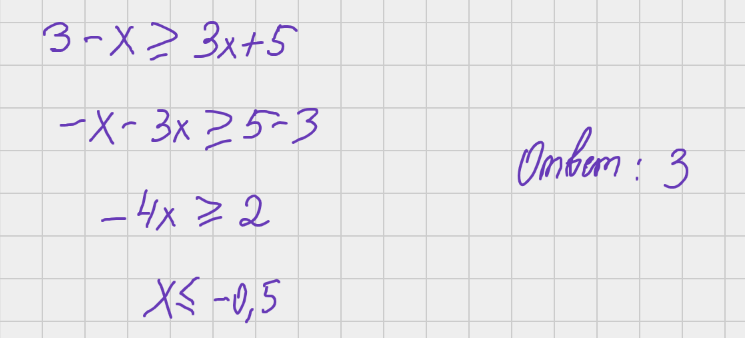 3 - x ≥ 3x + 5
-x - 3x ≥ 5 - 3
-4x ≥ 2
x ≤ -0,5
Ответ: 3